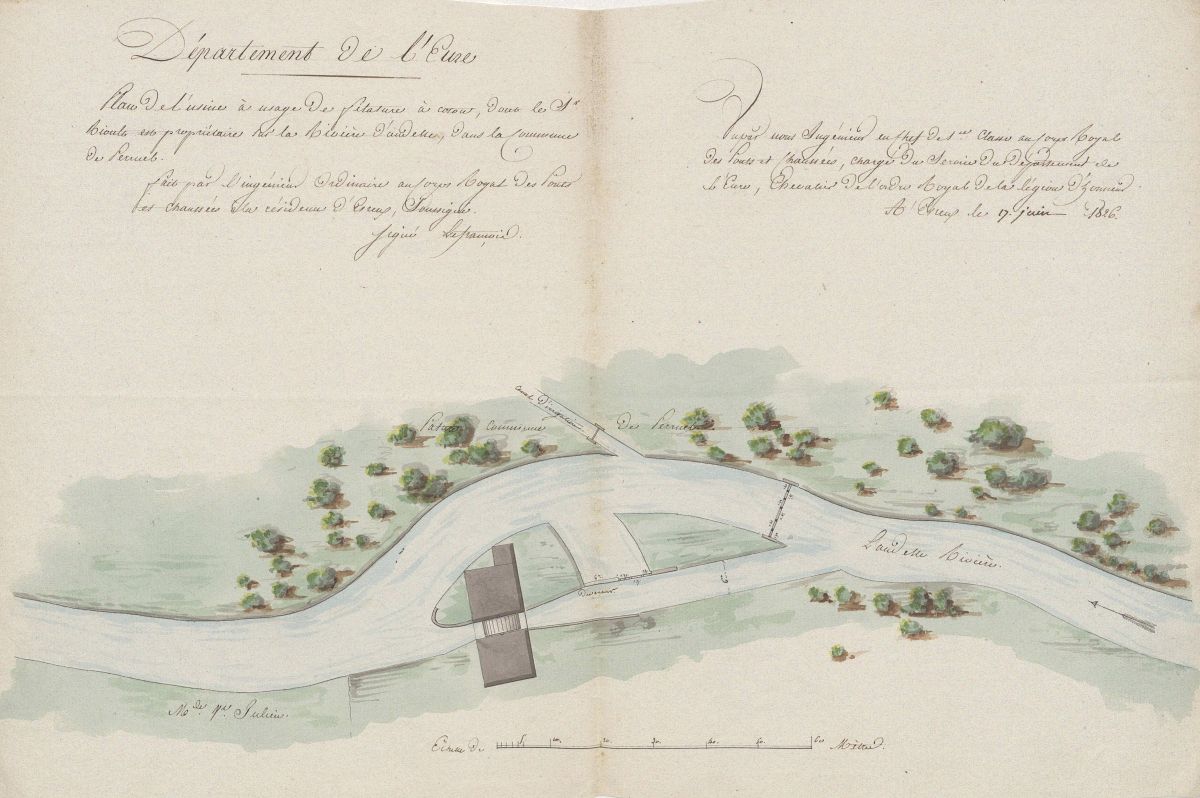 Département de l'Eure
Plan de l'usine à usage de filature à coton, dont le S.r
est propriétaire sur la Rivière d'andelle, dans la Commune
de Perruel.
fait par l'ingénieur Ordinaire au Corps Royal des Ponts
et chaussées à la résidence d', Soussigné.
Signé Lefrançois.
Vu par nous Ingénieur en chef de 1.ere Classe au Corps Royal
des Ponts et Chaussées, chargé du Service du Département de
l'Eure, Chevalier de l'ordre Royal de la légion d'honneur.
A le 17. juin 1826.
Canal d'irrigation
Pature Commune de Perruel.
Landelle Rivière.
Déversoir
M.de V.ve Julien.
Echelle de 5. 10. 20. 30. 40. 50. 60 Mètres.